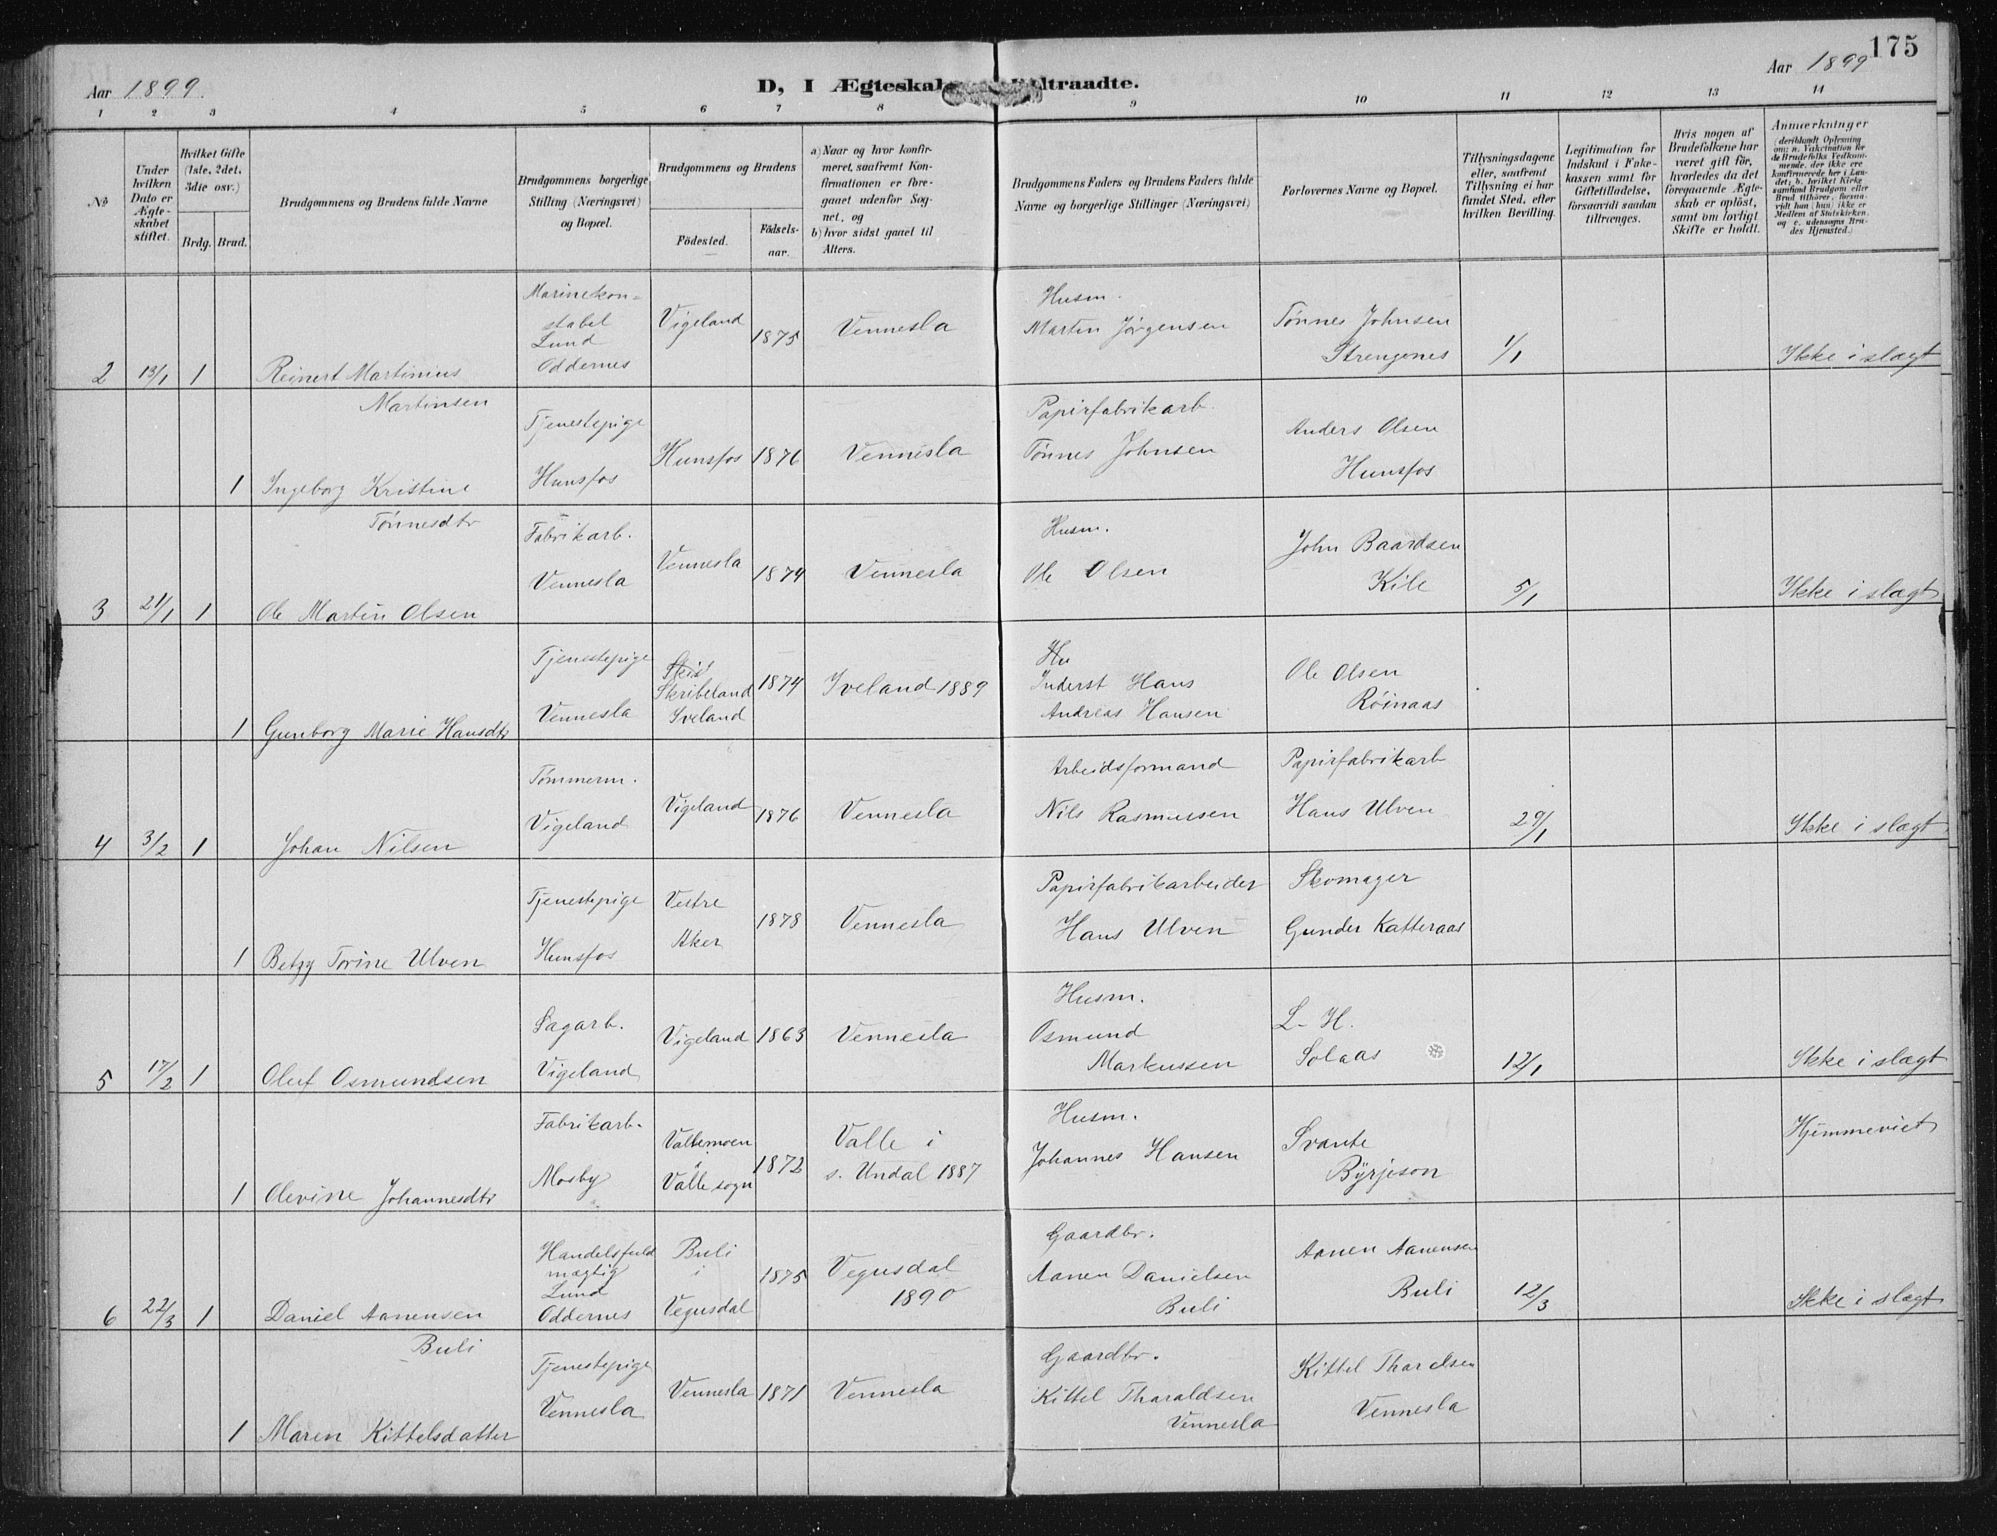 175
Aar 1899.
D, I Ægteskab Indtraadte.
Aar 1899
1 2 3 4 5 6 7 8 9 10 11 12 13 14
No
Under hvilken Dato er Ægteskabet stiftet.
Hvilket Gifte (1ste, 2det, 3die osv.)
Brdg. Brud.
Brudgommens og Brudens fulde Navne
Brudgommens borgerlige Stilling (Næringsvei) og Bopæl.
Brudgommens og Brudens
Födested. Födselsaar.
a) Naar og hvor konfirmeret, saafremt Konfirmationen er foregaaet udenfor Sognet, og
b) hvor sidst gaaet til Alters.
Brudgommens Faders og Brudens Faders fulde Navne og borgerlige Stillinger (Næringsvei)
Forlovernes Navne og Bopæl.
Tillysningsdagene eller, saafremt Tillysning ei har fundet Sted, efter hvilken Bevilling.
Legitimation for Indskud i Enkekassen samt for Giftetilladelse, forsaavidt saadan tiltrænges.
Hvis nogen af Brudefolkene har været gift för, hvorledes da det foregaaende Ægteskab er oplöst, samt om lovligt Skifte er holdt.
Anmærkninger
(deriblandt Oplysning om: a. Vakcination for de Brudefolks Vedkommende, der ikke ere konfirmerede her i Landet; b. hvilket Kirkesamfund Brudgom eller Brud tilhörer, forsaavidt han (hun) ikke er Medlem af Statskirken, og c. udensogns Brudes Hjemsted.)
2 13/1 1 Reinert Martinius
Martinsen
Marinekon=
stabel
Lund
Oddernes
Vigeland 1875 Vennesla
Husm.
Martin Jörgensen
Tönnes Johnsen
Strengenes
1/1
Ikke i slægt
1 Ingeborg Kristine
Tönnesdtr
Tjenestepige
Hunsfos
Hunsfos 1876 Vennesla
Papirfabrikarb.
Tönnes Johnsen
Anders Olsen
Hunsfos
3 21/1 1 Ole Martin Olsen
Fabrikarb.
Vennesla
Vennesla 1874 Vennesla
Husm.
Ole Olsen
John Baardsen
Kile
5/1
Ikke i slægt
1 Gunborg Marie Hansdtr
Tjenestepige
Vennesla
Skribeland
Iveland
1874 Iveland 1889
Hu
Inderst Hans
Andreas Hansen
Ole Olsen
Röinaas
4 3/2 1 Johan Nilsen
Tömmerm.
Vigeland
Vigeland 1876 Vennesla
Arbeidsformand
Nils Rasmussen
Papirfabrikarb
Hans Ulven
29/1
Ikke i slægt
1 Betzy Torine Ulven
Tjenestepige
Hunsfos
Vestre
Aker
1878 Vennesla
Papirfabrikarbeider
Hans Ulven
Skomager
Gunder Katteraas
5 17/2 1 Oluf Osmundsen
Sagarb.
Vigeland
Vigeland 1863 Vennesla
Husm.
Osmund
Markussen
L. H.
Solaas
12/1
Ikke i slægt
1 Olevine Johannesdtr
Fabrikarb.
Mosby
Vallemoen
i
Valle sogn
1872
Valle i
s. Undal 1887
Husm.
Johannes Hansen
Svante
Byrjeson
Hjemmeviet
6 22/3 1 Daniel Aanensen
Buli
Handelsfuld
mægtig
Lund
Oddernes
Buli
i
Vegusdal
1875
Vegusdal
1890
Gaardbr.
Aanen Danielsen
Buli
Aanen Aanensen
Buli
12/3
Ikke i slægt
1 Maren Kittelsdatter
Tjenestepige
Vennesla
Vennesla 1871 Vennesla
Gaardbr.
Kittel Tharaldsen
Vennesla
Kittel Tharelsen
Vennesla